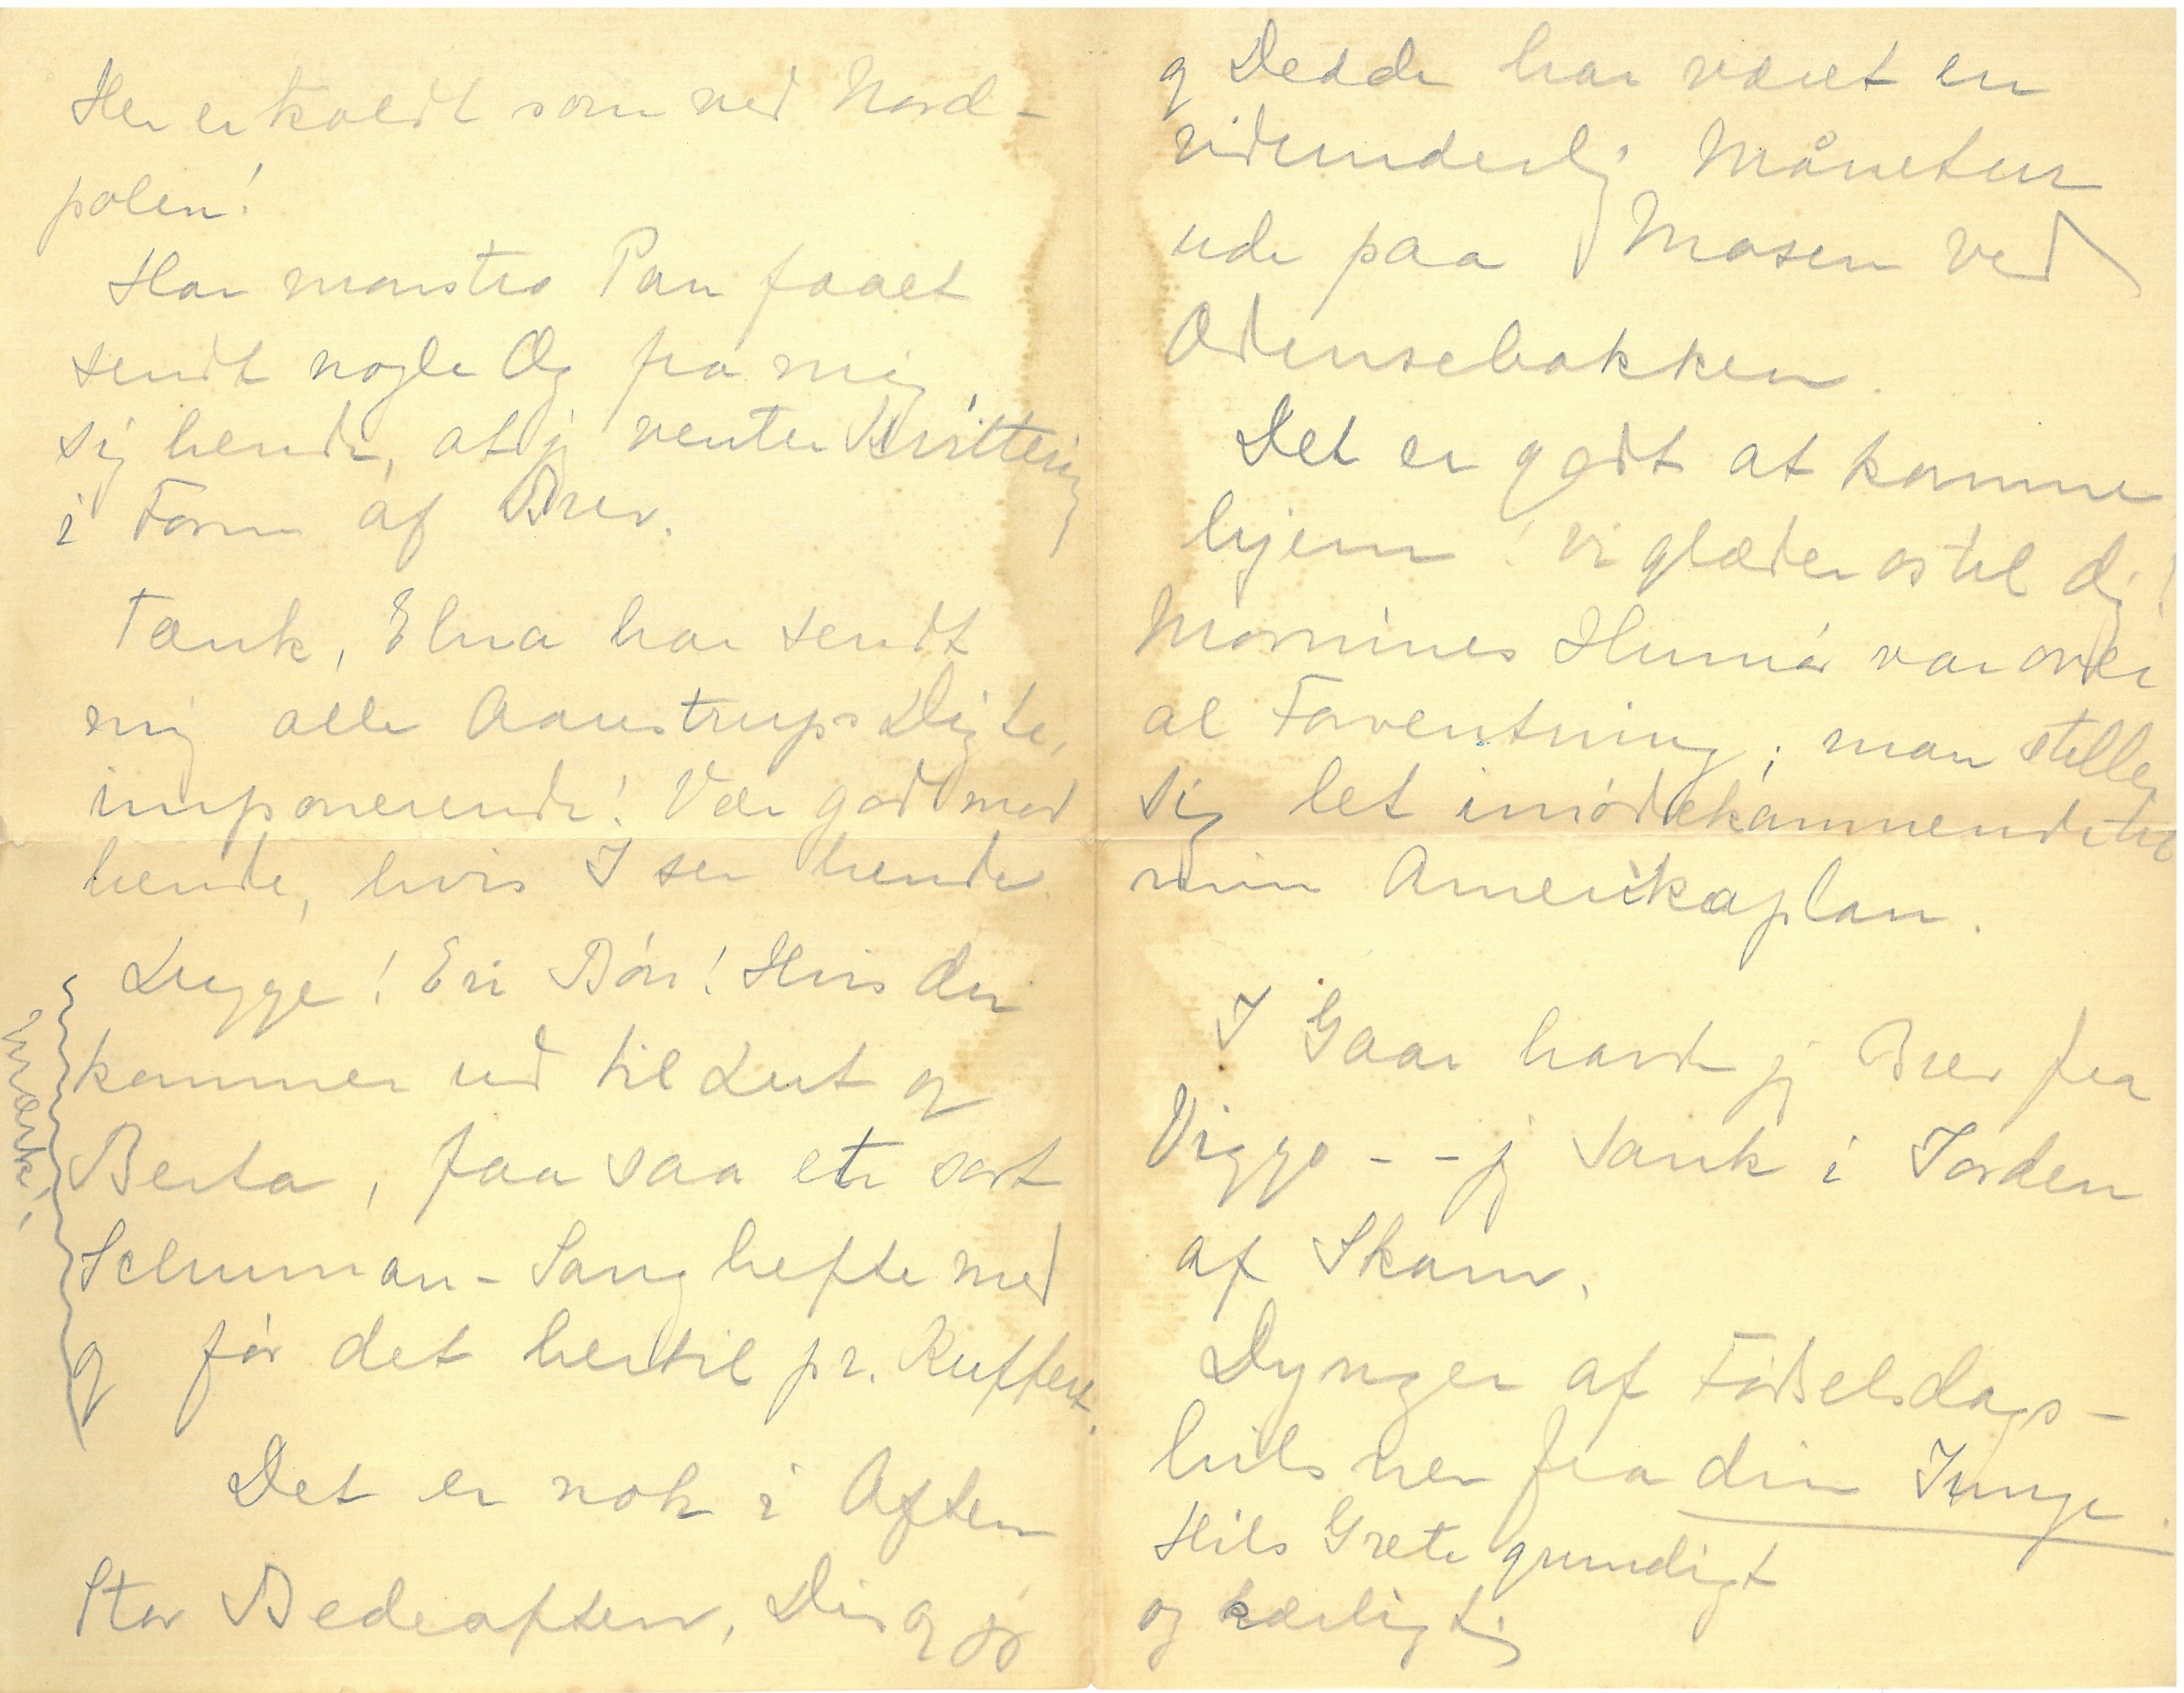 Her er koldt som ved Nord-
polen!
Har monstro Pan faaet
sendt nogle Æg fra mig
sig hende, at jeg venter Kvittering
i Form af Brev.
Tænk, Elna har sendt
mig alle Aarestrups Digte,
imponerende! Vær god mod
hende, hvis I ser hende.
Lugge! En Bøn! Hvis du
kommer ud til Lut og
Berta, faa saa et sort
Schuman-Sanghefte med
og før det hertil pr. Kuffert.
mærk!
Det er nok i Aften
Stor Bededagsaften, Dis og jeg
og Dedde har været en
vidunderlig Månetur
ude paa Mosen ved
Odensebakken.
Det er godt at komme
hjem! vi glæder os til dig!
Mornines Humør var over
al Forventning; man stiller
sig let imødekommende til
min Amerikaplan.
I Gaar havde jeg Brev fra
Viggo - - jeg sank i Jorden
af Skam.
Dynger af Fødselsdags-
hilsner fra din Junge.
Hils Grete grundigt
og kærligt